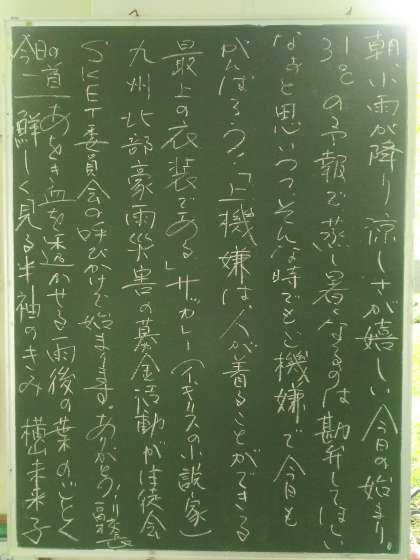 朝、小雨が降り涼しさが嬉しい今日の始まり。
31℃の予報で蒸し暑くなるのは勘弁してほしい
なぁと思いつつそんな時でもご機嫌で今日も
がんばろう。「上機嫌は、人が着ることができる
最上の衣装である。」サッカレー（イギリスの小説家）
九州北部豪雨災害の募金活動が生徒会
SKET委員会の呼びかけで始まります。ありがとう！副校長
今日の一首 あをき血を透かせる雨後の葉のごとく
鮮しく見る半袖のきみ 横山未来子